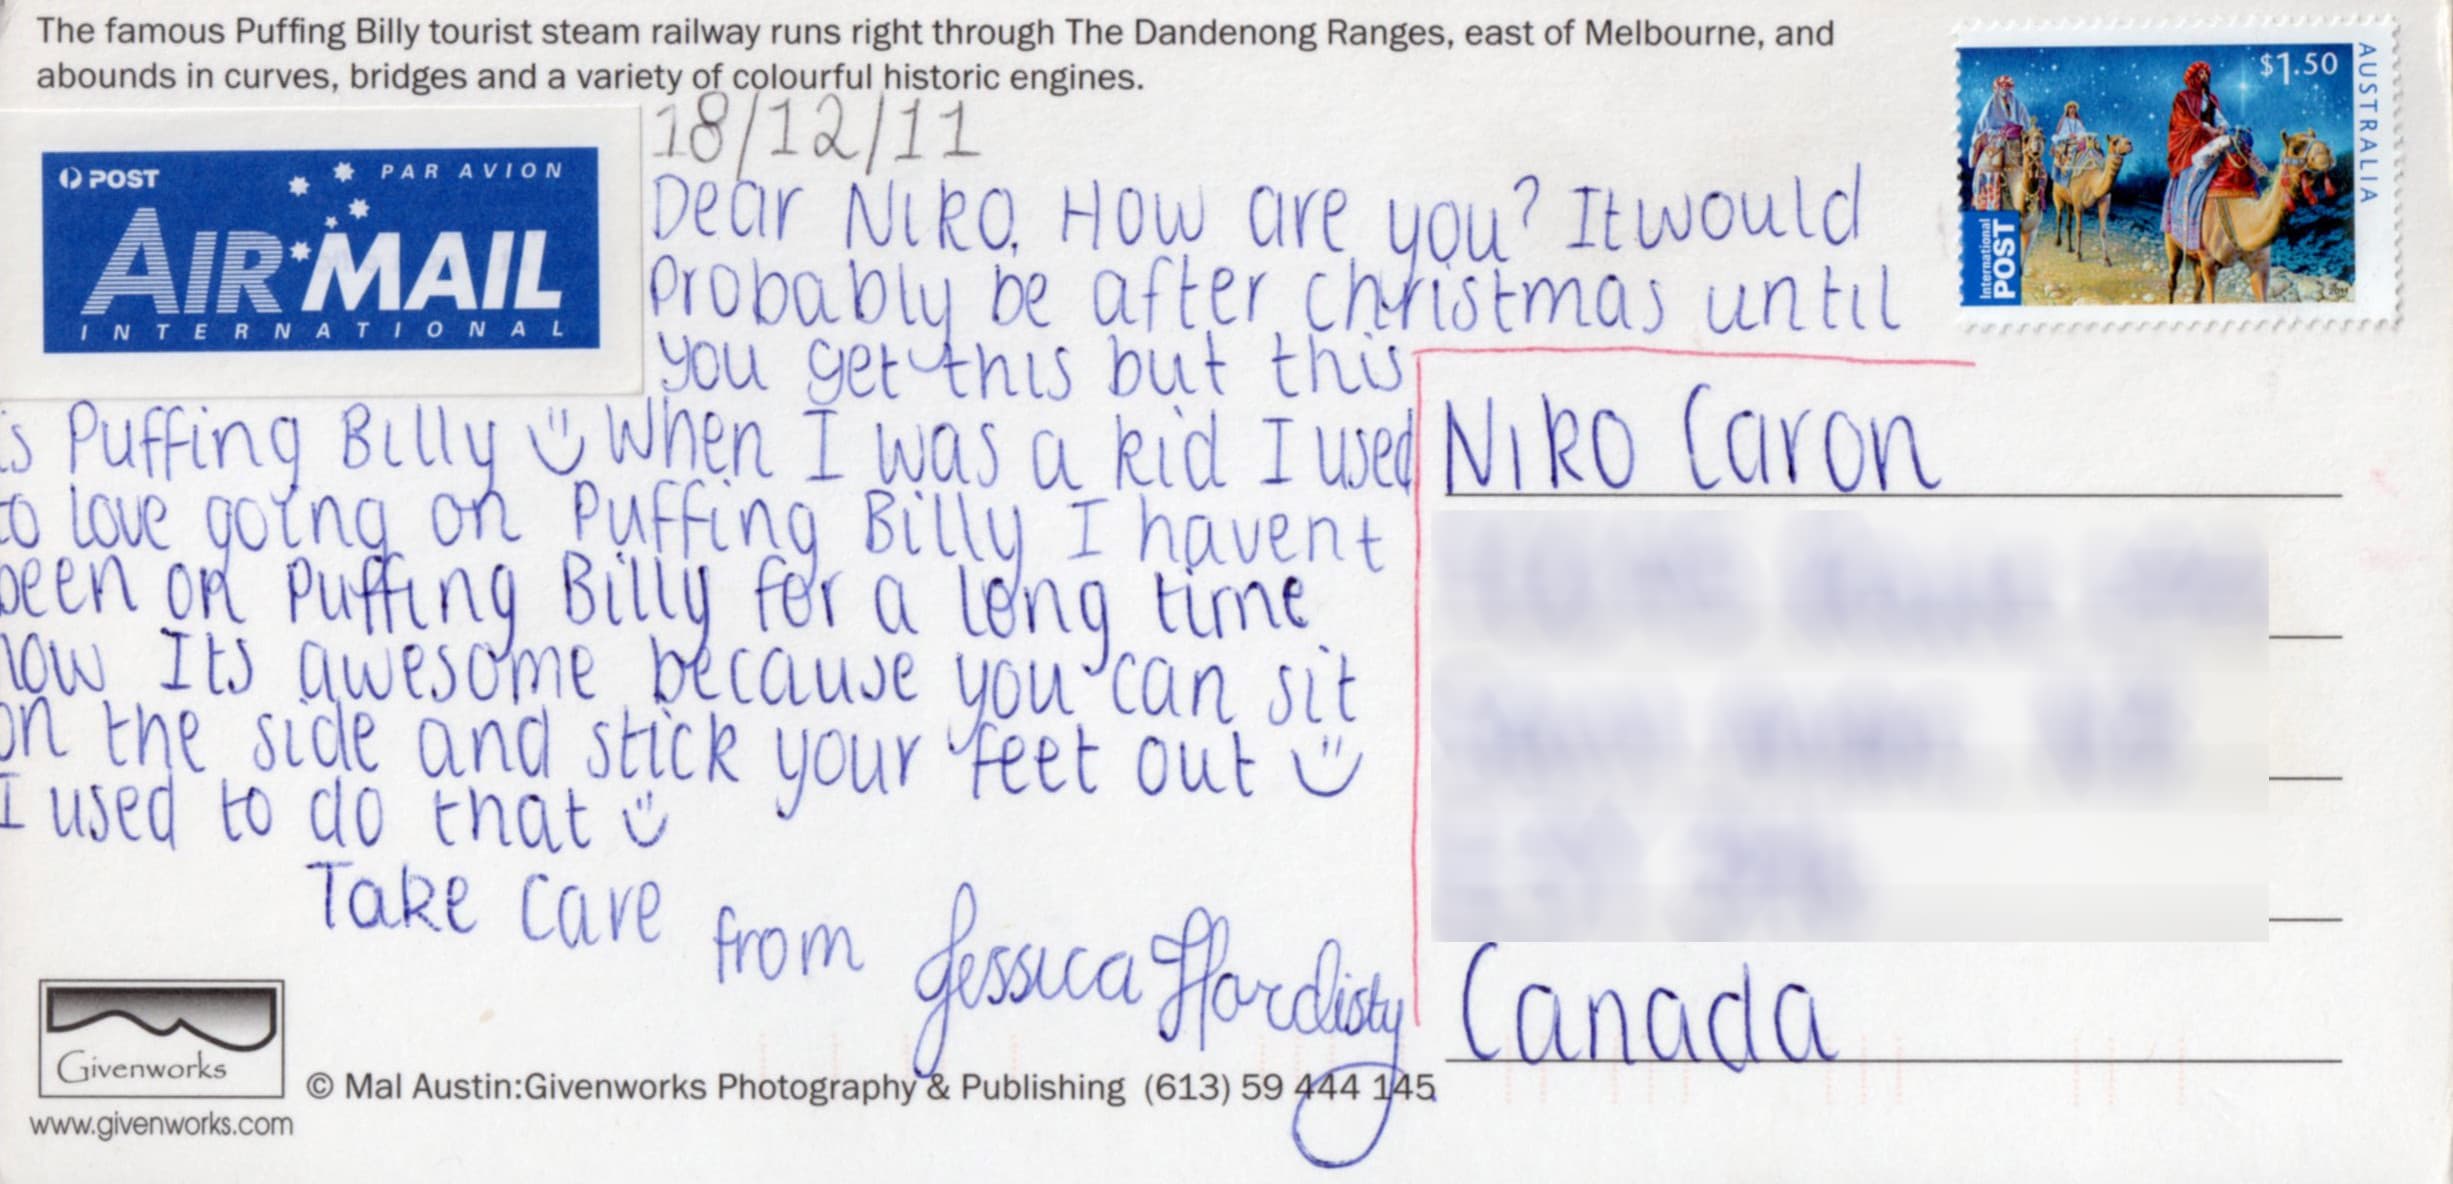 The famous Puffing Billy tourist steam railway runs right through The Dandenong Ranges, east of Melbourne, and
abounds in curves, bridges and a variety of colourful historic engines.
POST PAR AVION
AIR MAIL
INTERNATIONAL
18/12/11
Dear Niko. How are you? It would
probably be after christmas until
you get this but this
is Puffing Billy When I was a kid I used
to love going on Puffing Billy I havent
been on Puffing Billy for a long time
now Its awesome because you can sit
on the side and stick your feet out
I used to do that
Take care
from Jessica Hardisty
$1.50
AUSTRALIA
International
POST
Niko Caron
Canada
Givenworks
© Mal Austin:Givenworks Photography & Publishing (613) 59 444 145
www.givenworks.com